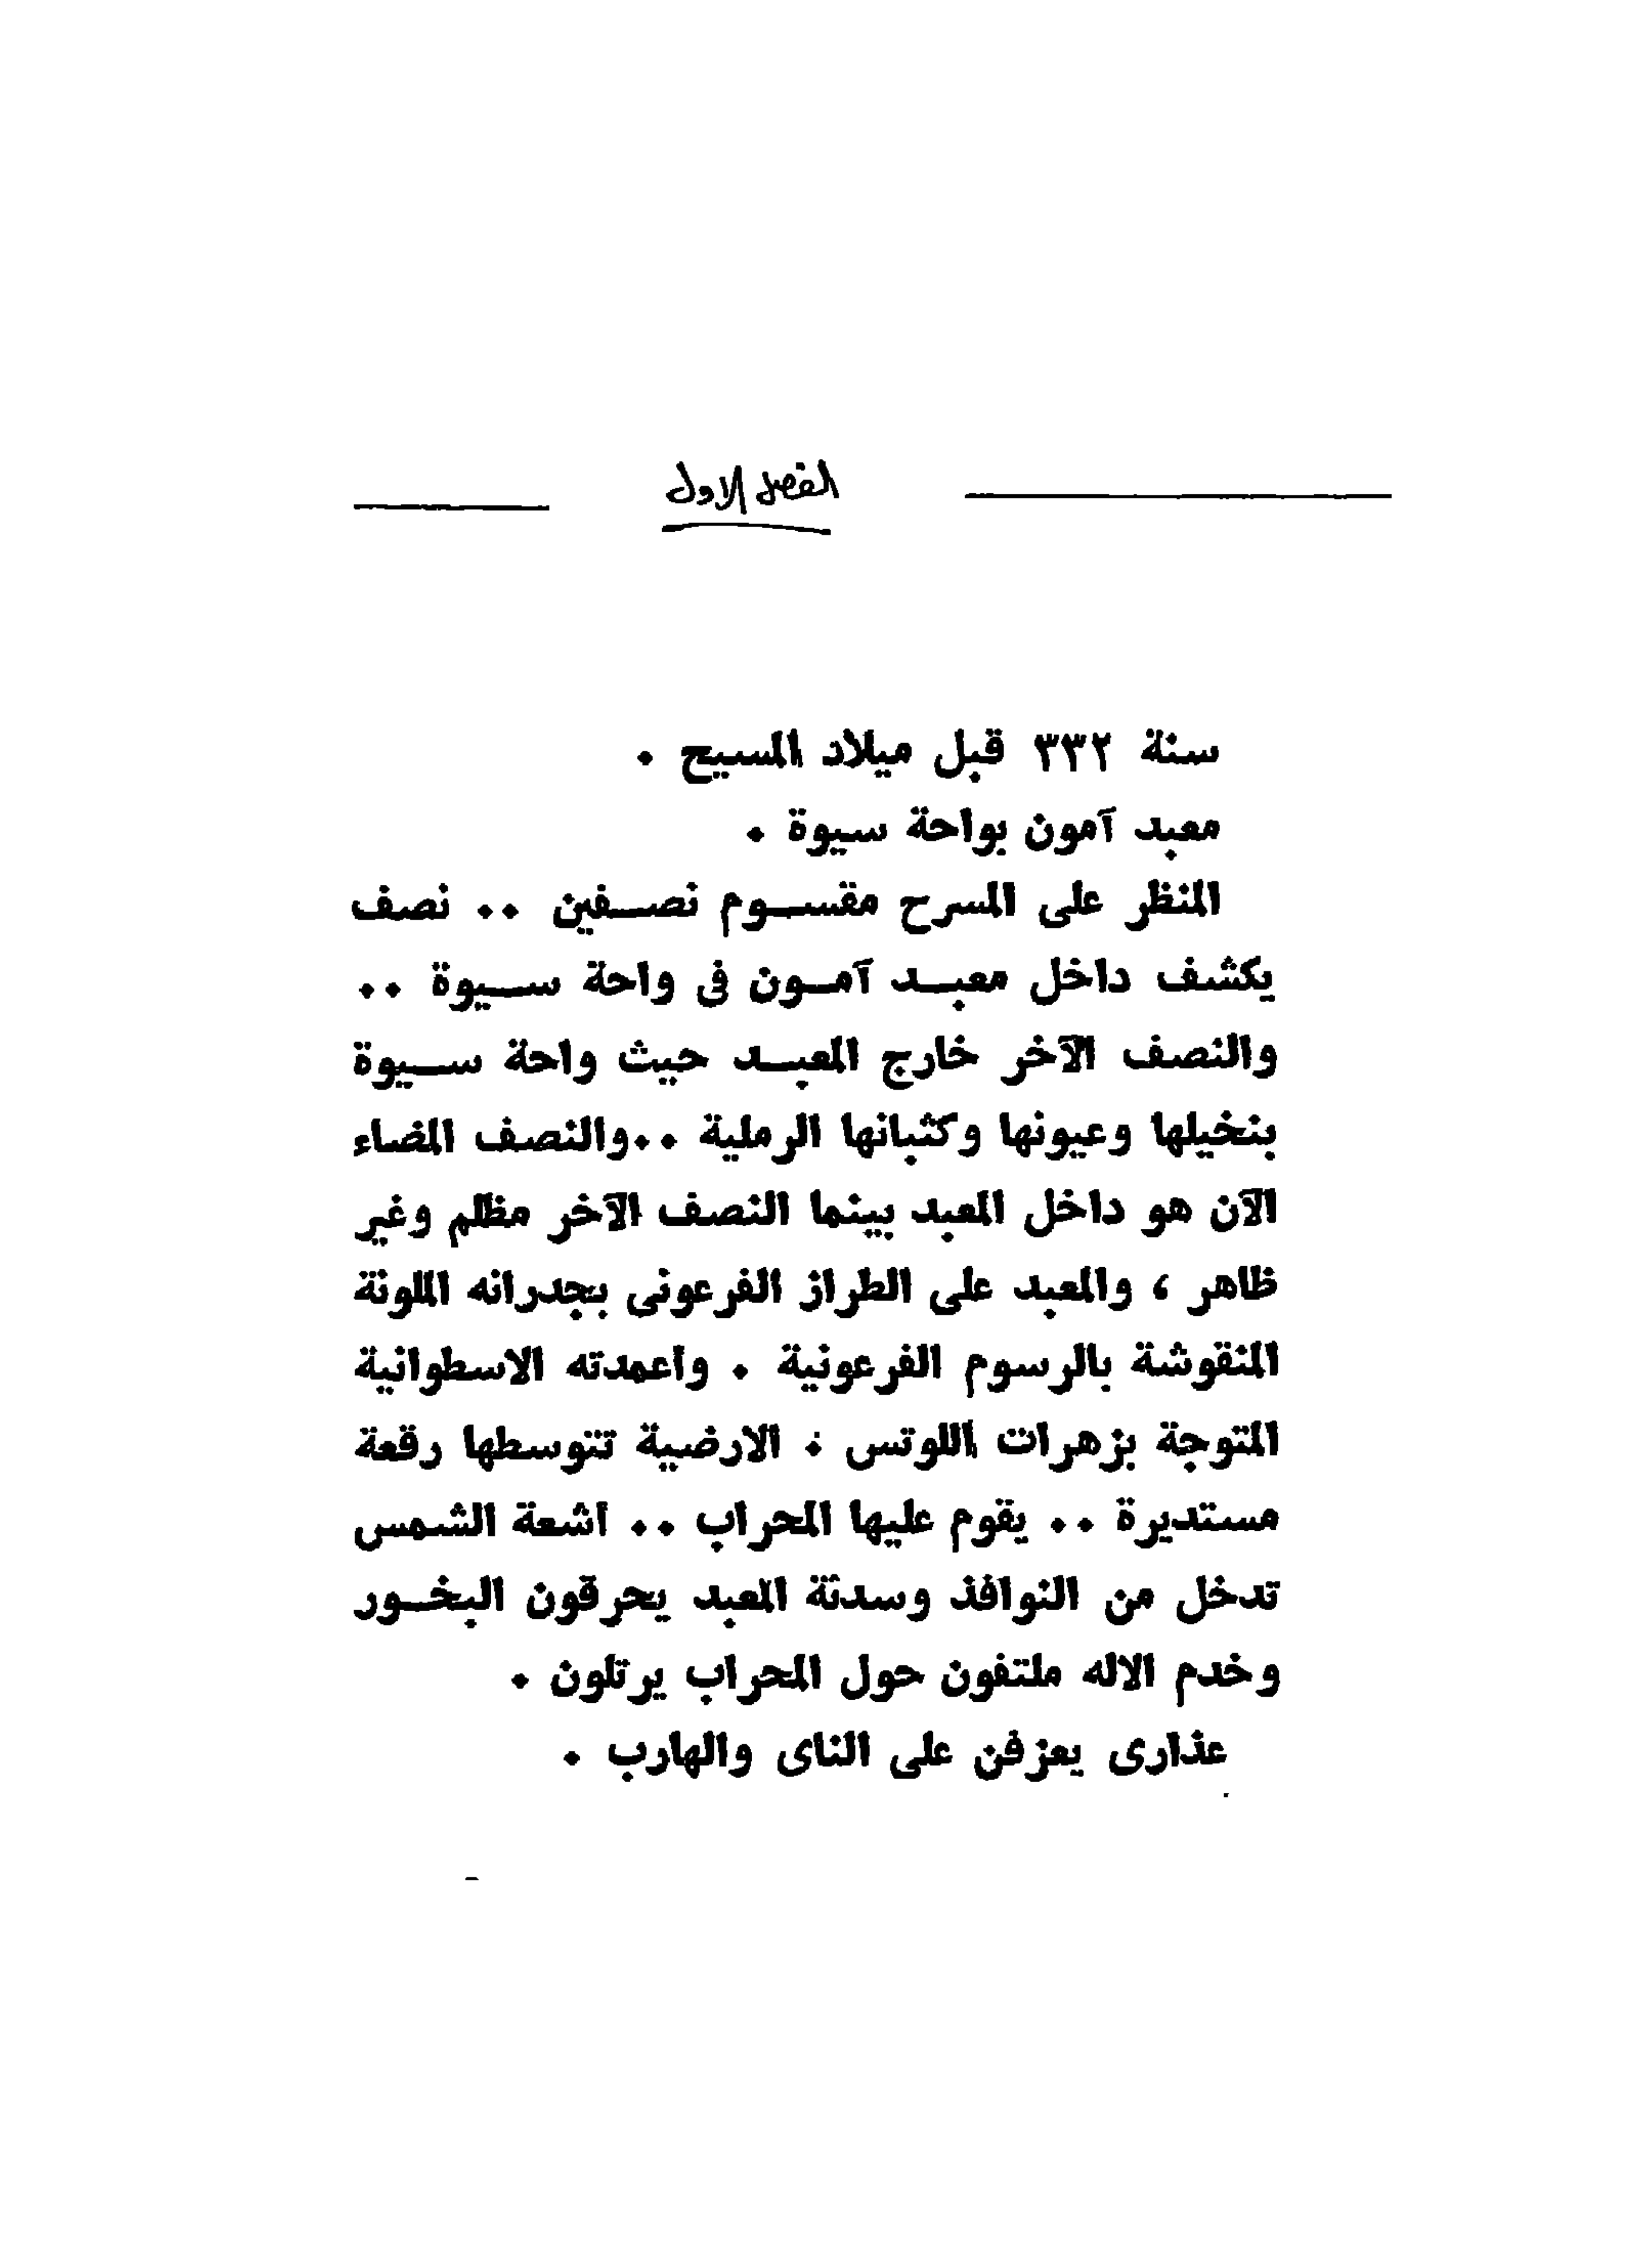 الفصل الاول
سنة ٣٣٢ قبل ميلاد المسيح .
معبد آمون بواحة سيوة .
المنظر على المسرح مقسوم نصفين .. نصف
يكشف داخل معبد آمون فى واحة سيوة ..
والنصف الآخر خارج المعبد حيث واحة سيوة
بنخيلها وعيونها وكثبانها الرملية ..والنصف المضاء
الآن هو داخل المعبد بينما النصف الآخر مظلم وغير
ظاهر ، والمعبد على الطراز الفرعونى بجدرانه الملونة
المنقوشة بالرسوم الفرعونية . وأعمدته الاسطوانية
المتوجة بزهرات اللوتس . الارضية تتوسطها رقعة
مستديرة .. يقوم عليها المحراب .. أشعة الشمس
تدخل من النوافذ وسدنة المعبد يحرقون البخور
وخدم الاله ملتفون حول المحراب يرتلون .
عذارى يعزفن على الناى والهارب .